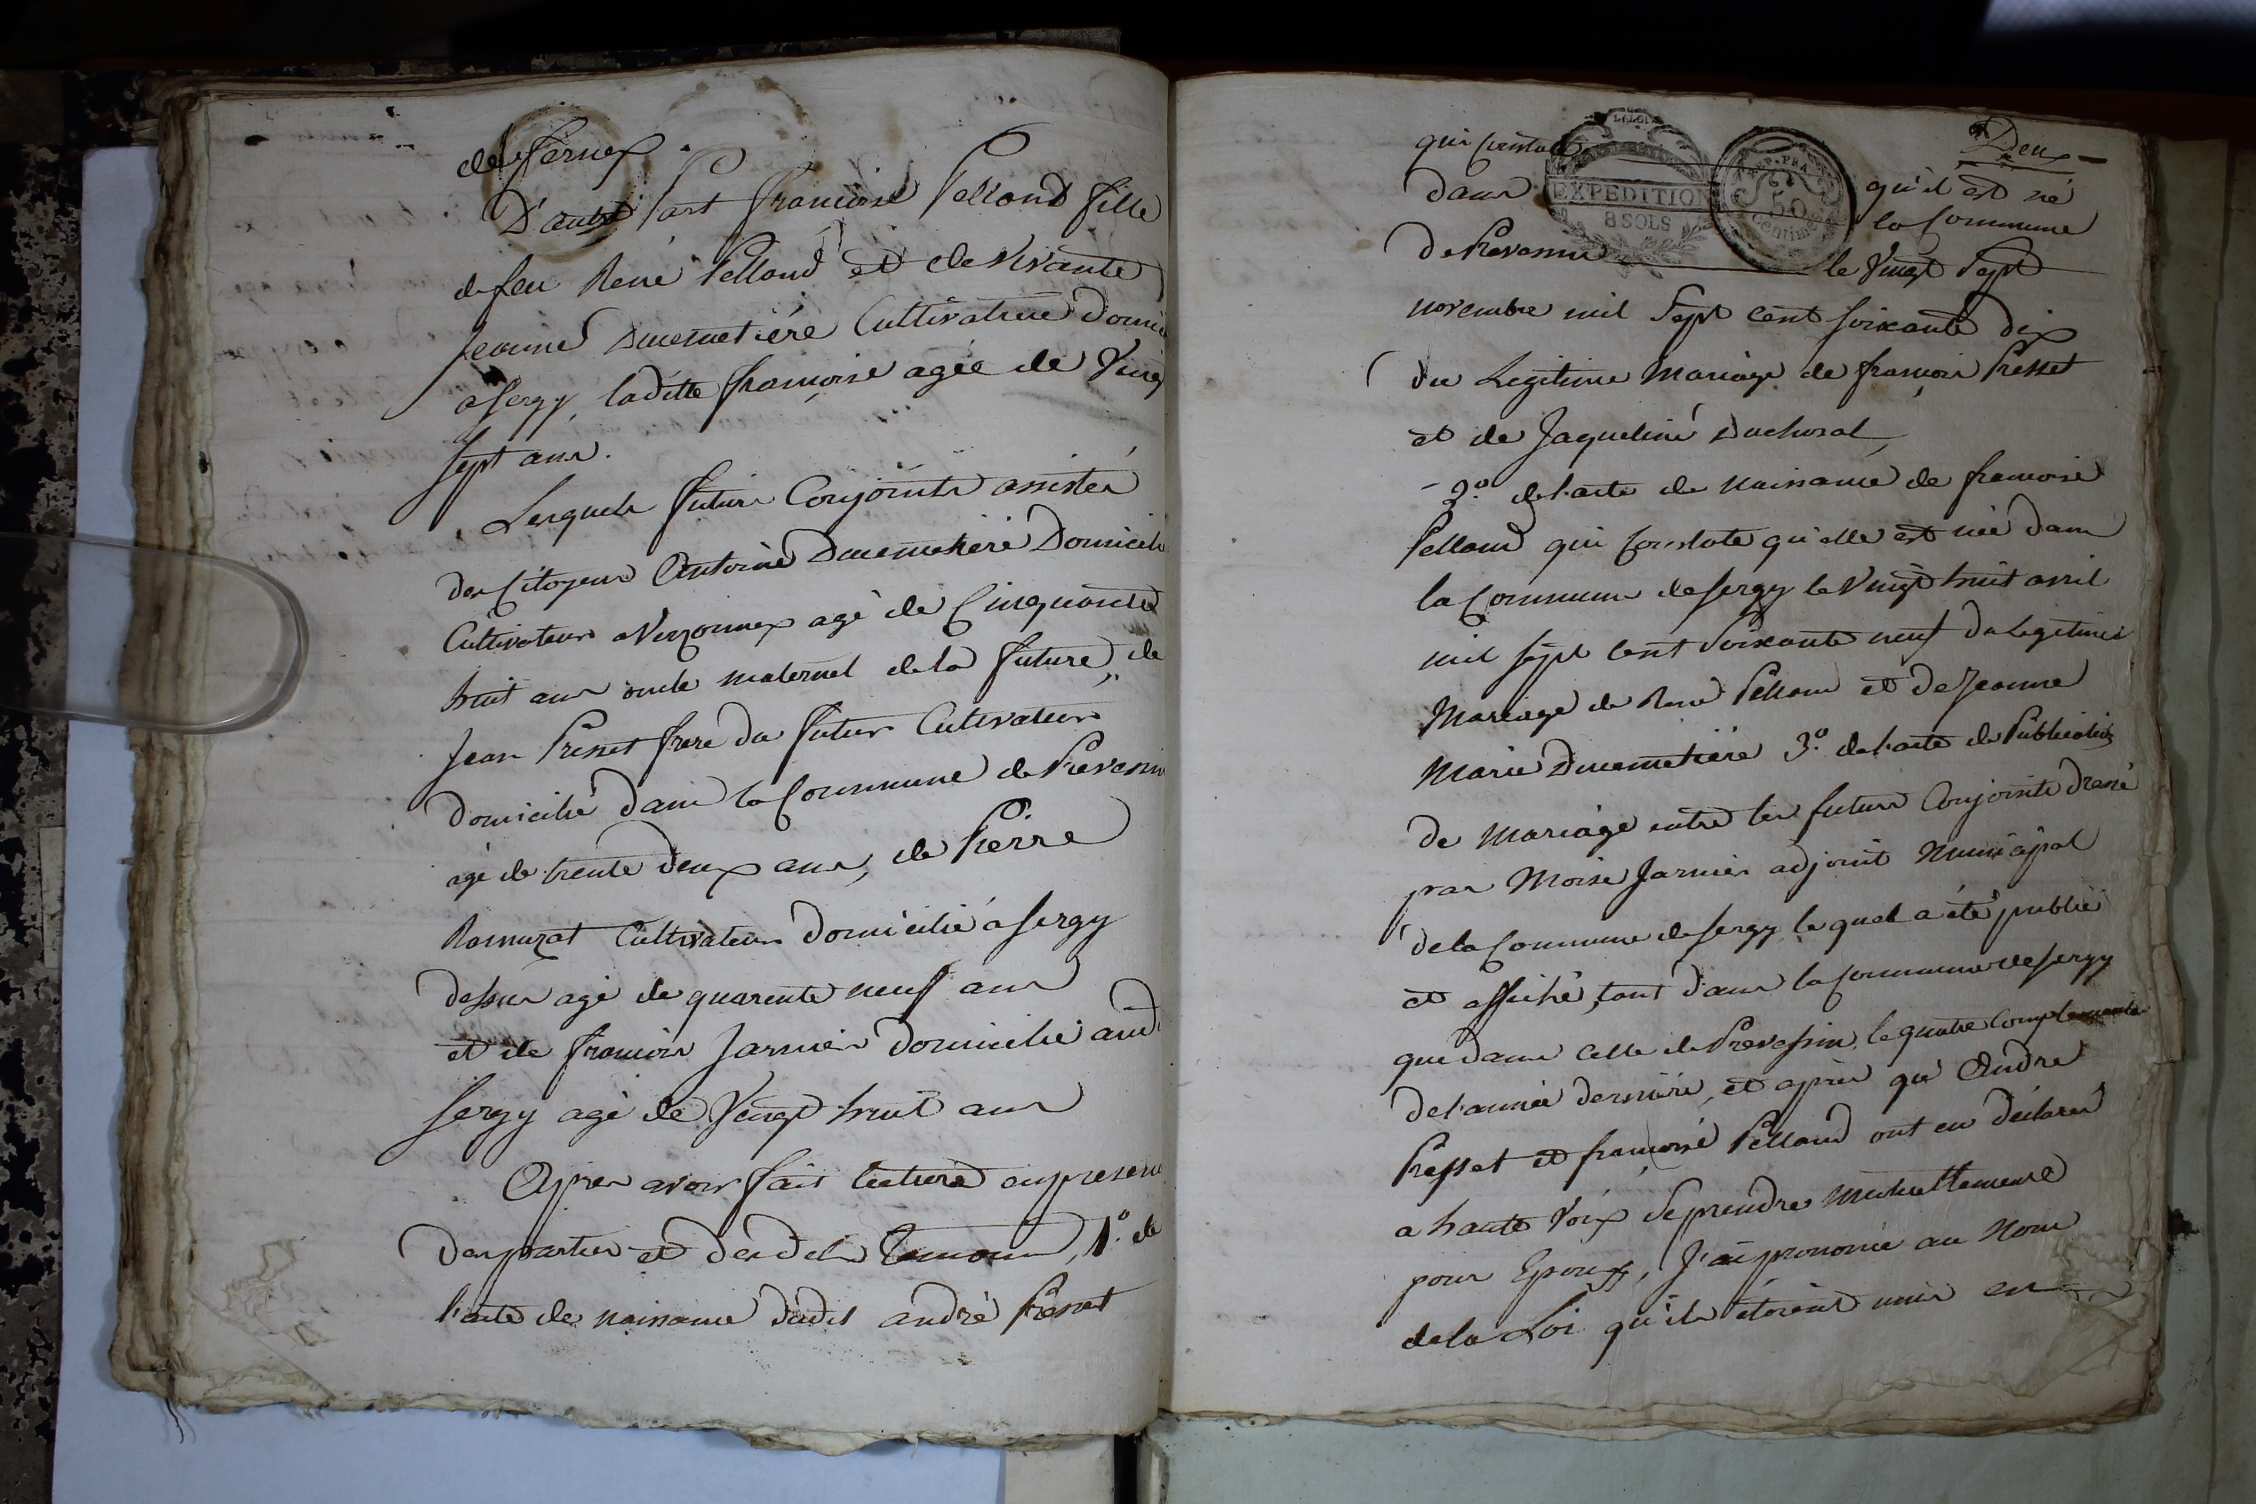 de fernex
D'autre Part francoise Pelloud fille
de feu René Pelloud et de vivante
jeanne Ducimetière Cultivatrice Domi
a sergy, laditte françoise agée de Vingt
sept ans.
Lesquels futurs Conjoints assistés
des Citoyens Antoine Ducimetiere Domicili
Cultivateur a Verzonnex agé de Cinquante
huit ans oncle maternel de la future, de
jean Presset frere du futur Cultivateur
domicilié dans la Commune de Prevessin
agé de trente deux ans, de Pierre
Cultivateur domicilié a sergy
dessus agé de quarente neuf ans
et de francois Jarnier domicilié aud.
sergy agé de Vingt huit ans
Apres avoir fait lecture en presence
des parties et desdits temoins, 1.º de
l'acte de naissance dudit andré Presset
Deux
qui constate qu'il est né
dans la Commune
EXPEDITION
8 SOLS
50
Centimes
de Prevessin le Vingt Sept
novembre mil Sept cent soixante dix
du Legitime Mariage de francois Presset
et de Jaqueline Duchoral
2.º de l'acte de naissance de francoise
Pelloud qui constate qu'elle est née dans
la Commune de sergy le Vingt huit avril
mil sept cent soixante neuf du Legitime
Mariage de René Pelloud et de Jeanne
Marie Ducimetière 3.º de l'acte de Publication
de Mariage entre les futurs Conjoints dressé
par Moise Jarnier adjoint Municipal
de la Commune de sergy lequel a été publié
et affiché, tant dans la Commune de sergy
que dans celle de Prevessin le quatre Complementaire
de l'année derniere, et après que Andre
Presset et françoise Pelloud ont eu déclaré
a haute Voix se prendre Mutuellement
pour Epoux, J'ai prononcé au Nom
de la Loi qu'ils étoient unis en